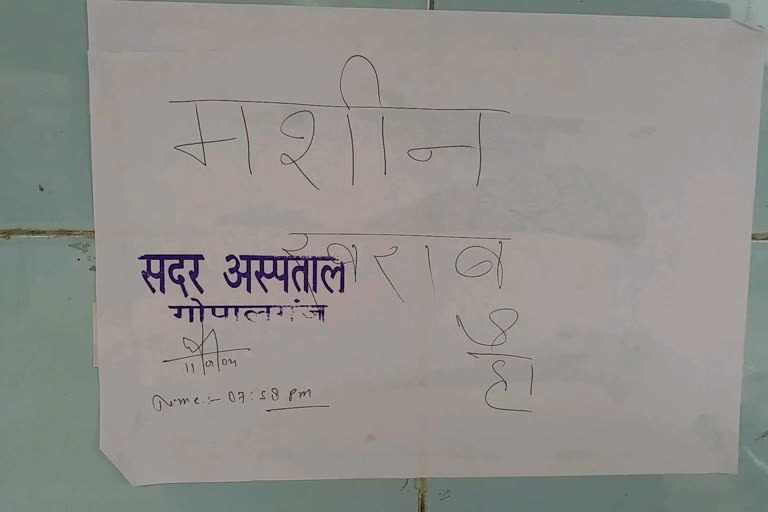 मशीन
खराब
है।
सदर अस्पताल
गोपालगंज
Time:- 07:58 pm